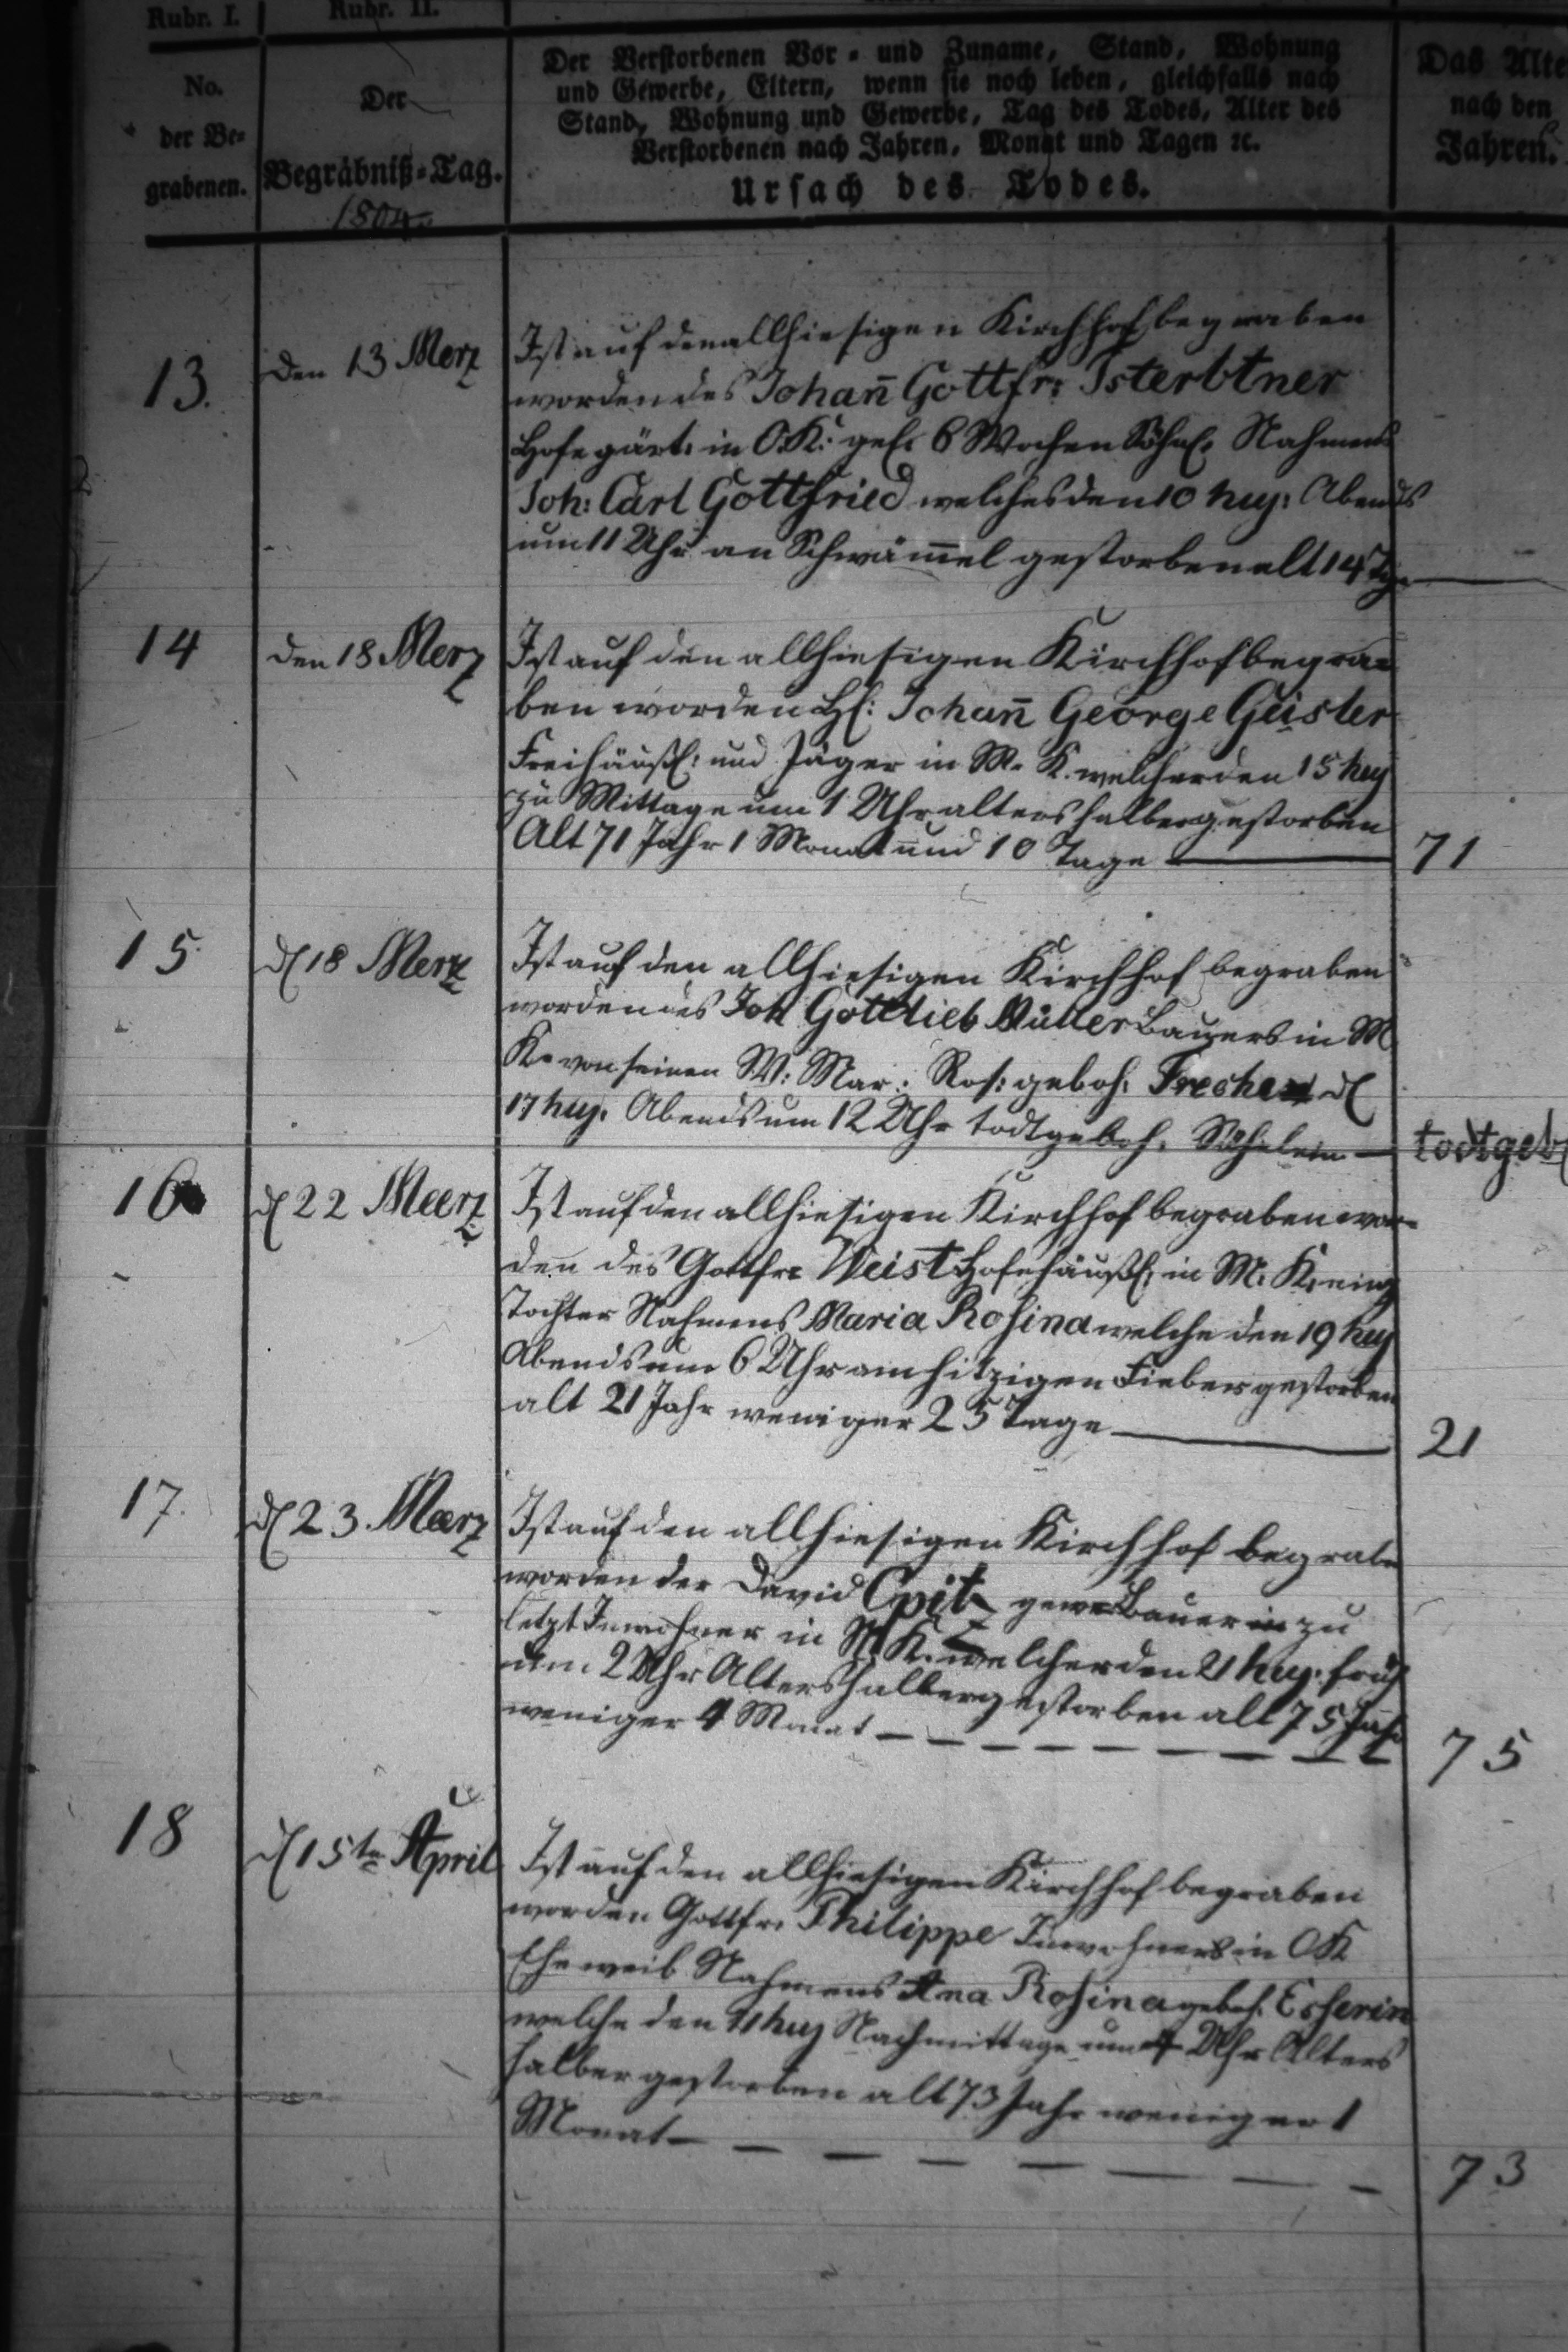 Rubr. I.
Rubr. II.
No.
der Be=
grabenen.
Der
Begräbniß=Tag.
1804.
Der Verstorbenen Vor = und Zuname, Stand, Wohnung
und Gewerbe, Eltern, wenn sie noch leben, gleichfalls nach
Stand, Wohnung und Gewerbe, Tag des Todes, Alter des
Verstorbenen nach Jahren, Monat und Tagen ꝛc.
Ursach des Todes.
Das Alte
nach den
Jahren.
13.
den 13 Merz
Ist auf den allhiesigen Kirchhof begraben
worden des Johan̄ Gottfr:
Hofegärt: in O.K: 6 Wochen Söhnl. Nahmens
Joh: Carl Gottfried welches den 10 huj: Abends
um 11 Uhr an Schwäm̄el gestorben alt 14 Tge
14
den 18 Merz
Ist auf den allhiesigen Kirchhof begra=
ben worden H: Johan̄ George Geisler
Freihäußl: und Jäger in M. K. welcher den 15 huj
zu Mittage um 1 Uhr altershalber gestorben
Alt 71 Jahr 1 Monat und 10 Tage
71
15.
d 18 Merz
Ist auf den allhiesigen Kirchhof begraben
worden des Joh Gottlieb Müller Bauers in M
K. von seinen W: Mar: Ros: geboh: d
17 huj. Abends um 12 Uhr todtgeboh. Söhnlein
todtgeb
16
d 22 Meerz
Ist auf den allhiesigen Kirchhof begraben wor=
den des Gottfr: Weist Hofehäußl: in M. K. einz
Tochter Nahmens Maria Rosina welche den 19 huj
Abends um 6 Uhr am hitzigen Fieber gestorben
alt 21 Jahr weniger 25 Tage
21
17.
d 23. Maerz
Ist auf den allhiesigen Kirchhof begrabn
worden der David gewes Bauer zu
letzt Inwohner in M. K. welcher den 21 huj. früh
um 2 Uhr Altershalber gestorben alt 75 Jahr
weniger 4 Monat
75
18
d 15tn April
Ist auf den allhiesigen Kirchhof begraben
worden Gottfr. Philippe Inwohners in OK
Eheweib Nahmens Ana Rosina geboh. Esherin
welche den 11 huj Nachmittage um 4 Uhr Alters
halber gestorben alt 73 Jahr weniger 1
Monat
73